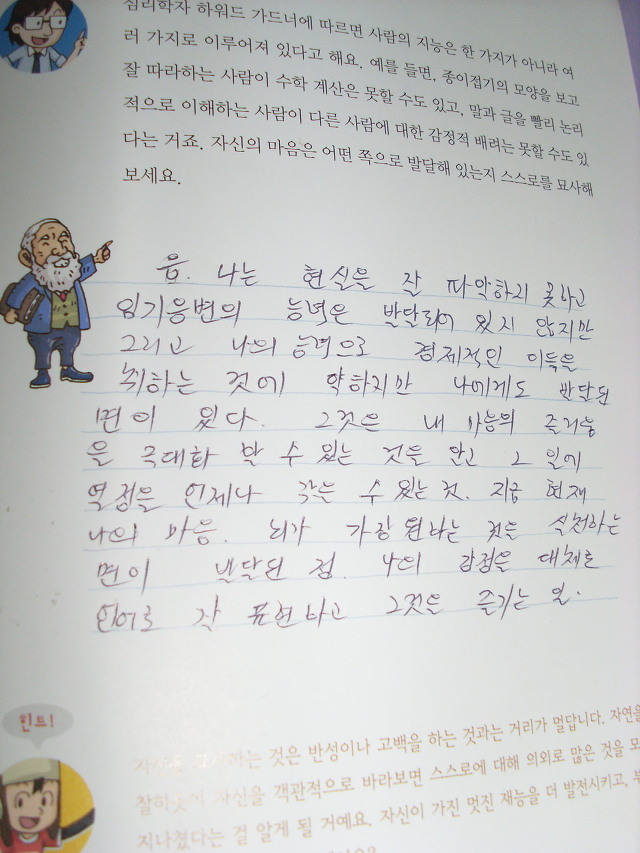 심리학자 하워드 가드너에 따르면 사람의 지능은 한 가지가 아니라 여
러 가지로 이루어져 있다고 해요. 예를 들면, 종이접기의 모양을 보고
잘 따라하는 사람이 수학 계산은 못할 수도 있고, 말과 글을 빨리 논리
적으로 이해하는 사람이 다른 사람에 대한 감정적 배려는 못할 수도 있
다는 거죠. 자신의 마음은 어떤 쪽으로 발달해 있는지 스스로를 묘사해
보세요.
음. 나는 현실을 잘 파악하지 못하고
임기응변의 능력은 발달되어 있지 않지만
그리고 나의 능력으로 경제적인 이득을
취하는 것에 약하지만 나에게도 발달된
면이 있다. 그것은 내 마음의 즐거움
을 극대화 할 수 있는 것을 안고 그 일에
열정을 언제나 갖을 수 있는 것. 지금 현재
나의 마음. 뇌가 가장 원하는 것을 실천하는
면이 발달된 점. 나의 감정을 대체로
언어로 잘 표현하고 그것을 즐기는 일.
힌트!
하는 것은 반성이나 고백을 하는 것과는 거리가 멀답니다. 자연을
자신을 객관적으로 바라보면 스스로에 대해 의외로 많은 것을
지나쳤다는 걸 알게 될 거예요. 자신이 가진 멋진 재능을 더 발전시키고,